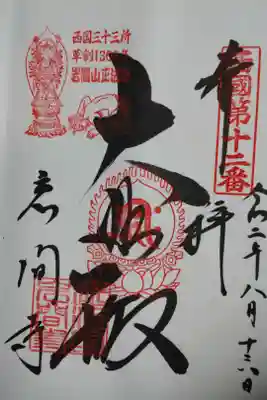 奉拝
西國第十二番
令和二年八月十六日
大悲殿
岩間寺
西国三十三所
草創1300年
岩間山正法寺